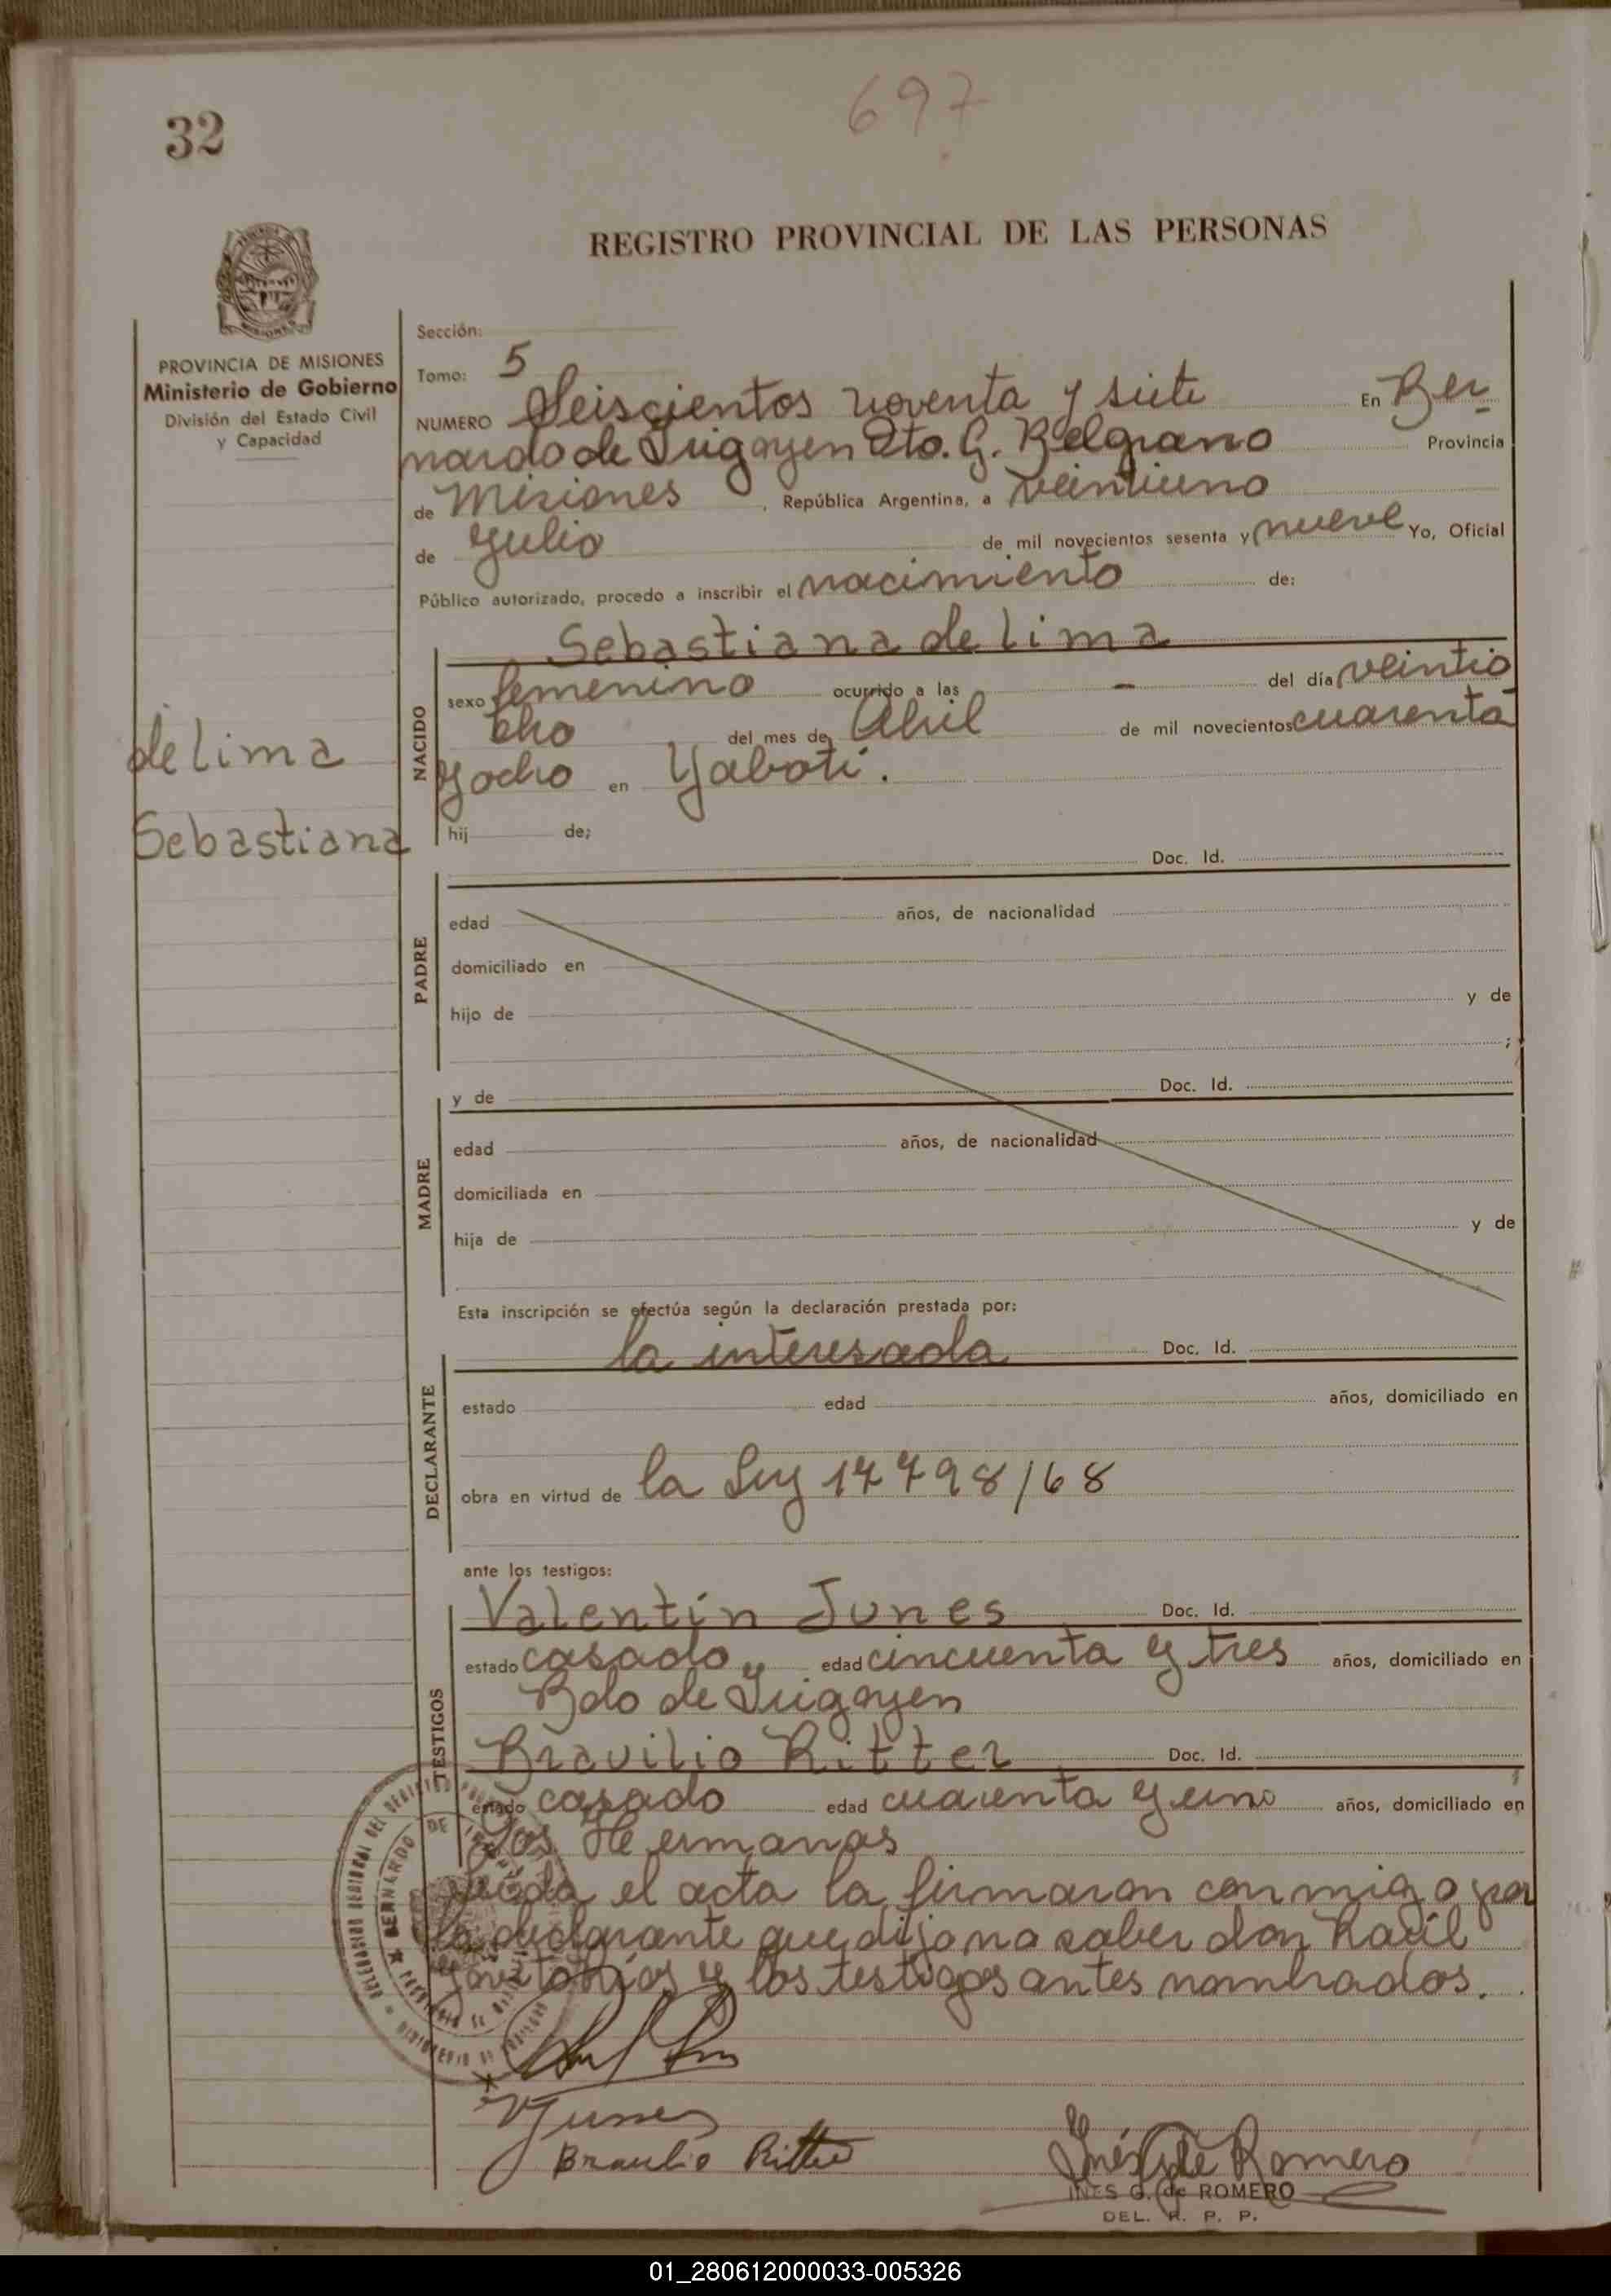 697
32
REGISTRO PROVINCIAL DE LAS PERSONAS
PROVINCIA DE MISIONES
Ministerio de Gobierno
División del Estado Civil
y Capacidad
Sección:
Tomo: 5
NUMERO Seiscientos noventa y siete En Ber
nardo de Irigoyen Dto. G. Belgrano Provincia
de Misiones, República Argentina, a veintiuno
de Julio de mil novecientos sesenta y nueve Yo, Oficial
Público autorizado, procedo a inscribir el nacimiento de:
Sebastiana de lima
NACIDO
sexo femenino ocurrido a las - del día veintio
cho del mes de Abril de mil novecientos cuarenta
y ocho en Yaboti.
de lima
Sebastiana
hij de;
Doc. Id.
PADRE
edad años, de nacionalidad
domiciliado en
hijo de y de
;
y de Doc. Id.
MADRE
edad años, de nacionalidad
domiciliada en
hija de y de
Esta inscripción se efectúa según la declaración prestada por:
la interesada Doc. Id.
DECLARANTE
estado edad años, domiciliado en
obra en virtud de la Ley 17798/68
ante los testigos:
Valentín Junes Doc. Id.
TESTIGOS
estado casado edad cincuenta y tres años, domiciliado en
Bdo de Irigoyen
Bravilio Ritter Doc. Id.
estado casado edad cuarenta y uno años, domiciliado en
Dos Hermanas
Leida el acta la firmaron conmigo por
la declarante que dijo no saber don Raúl
y los testigos antes nombrados.
VJunes
Braulio Ritter
Inés G de Romero
INES G. de ROMERO
DEL. R. P. P.
01_280612000033-005326